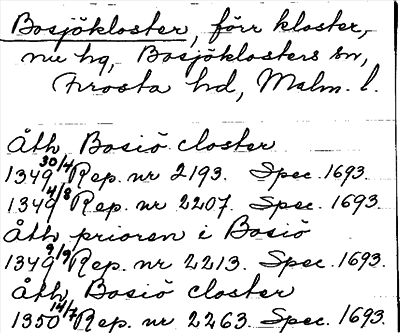 Bosjökloster, förr kloster,
nu hg, Bosjöklosters sn,
Frosta hd, Malm. l.
Åth Bosiö closter
1349 30/4 Rep. nr 2193. Spec. 1693.
1349 4/8 Rep. nr 2207. Spec. 1693.
Åth prioren i Bosiö
1349 9/9 Rep. nr 2213. Spec. 1693.
Åth Bosiö closter
1350 14/7 Rep. nr 2263. Spec. 1693.